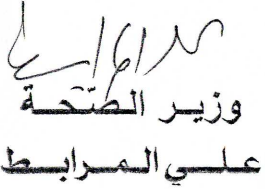 وزير الصحة
علي المرابط